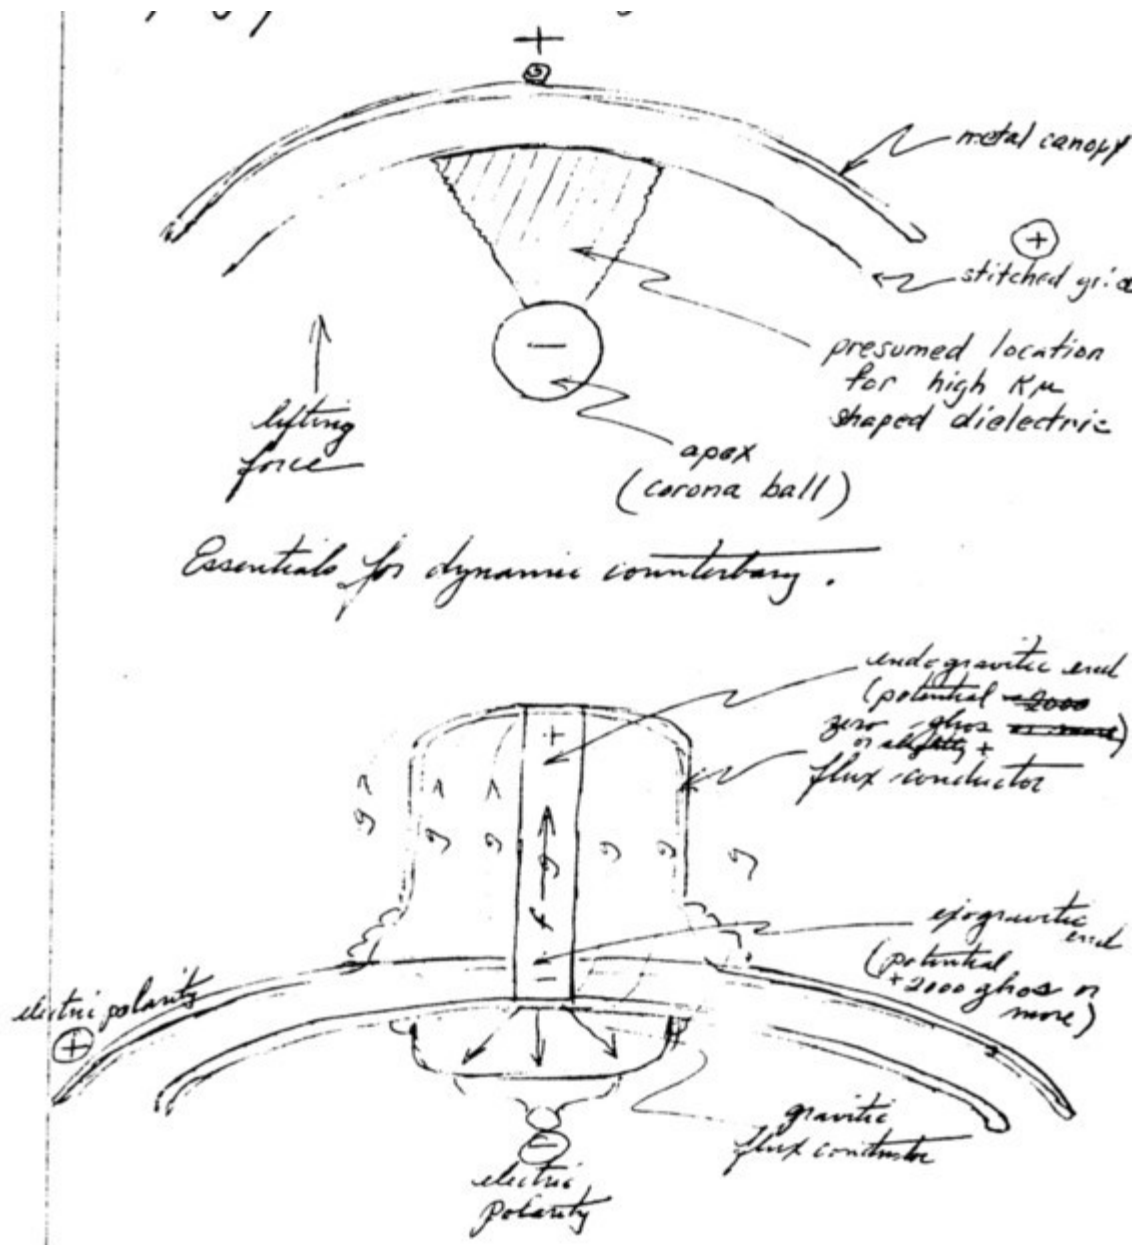 +
metal canopy
+
stitched grid
−
presumed location
for high Kμ
shaped dielectric
lifting
force
apex
(corona ball)
Essentials for dynamic counterbary.
endogravitic end
(potential 2000
zero ghos or more)
or slightly +
flux conductor
+
g g g g g g g
f
−
exogravitic
end
(potential
+2000 ghos or
more)
electric polarity
+
gravitic
flux conductor
−
electric
polarity